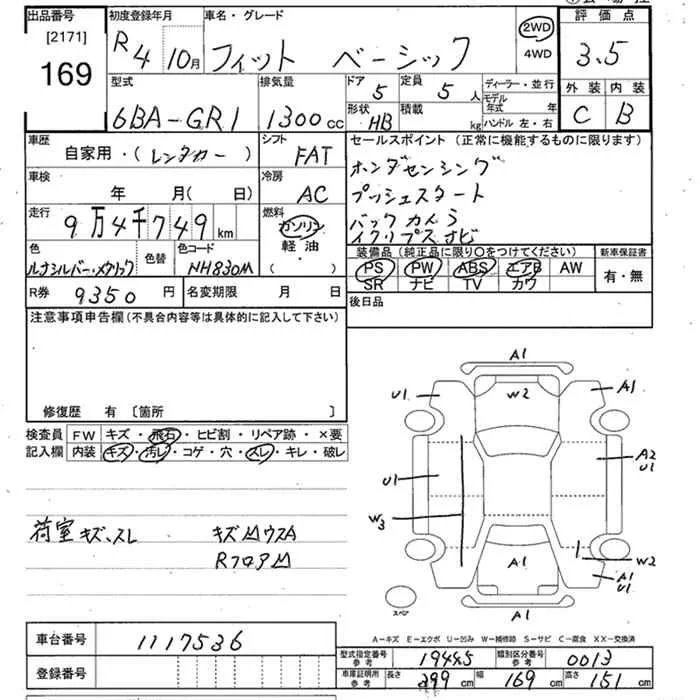 出品番号 初度登録年月 車名・グレード 評価点
[2171] 169 R4 10月 フィット ベーシック 2WD 4WD 3.5
型式 排気量 ドア 5 定員 5人 ディーラー・並行 外装 内装
6BA-GR1 1300cc 形状 HB 積載 kg モデル年式 年 ハンドル 左・右 C B
車歴 自家用・(レンタカー) シフト FAT セールスポイント (正常に機能するものに限ります)
車検 年 月(日) 冷房 AC ホンダセンシング
プッシュスタート
走行 9万4千749km 燃料 ガソリン 軽油 ( ) バックカメラ
イクリプスナビ
色 ルナシルバー・メタリック 色替 色コード NH830M 装備品 (純正品に限り○をつけてください) 新車保証書
PS PW ABS エアB AW 有・無
SR ナビ TV カワ
R券 9350円 名変期限 月 日 後日品
注意事項申告欄(不具合内容等は具体的に記入して下さい)
修復歴 有 〔箇所 〕
検査員 FW キズ・飛石・ヒビ割・リペア跡・×要
記入欄 内装 キズ・汚レ・コゲ・穴・スレ・キレ・破レ
荷室 キズ、スレ
Rフロア
A1
U1 W2 A1
U1 A2 U1
W3
W2
A1 A1 U1
スペア A1
A-キズ E-エクボ U-凹み W-補修跡 S-サビ C-腐食 XX-交換済
車台番号 1117536
登録番号
型式指定番号 参考 19445 類別区分番号 参考 0013
車庫証明用 参考 長さ 399cm 幅 169cm 高さ 151cm